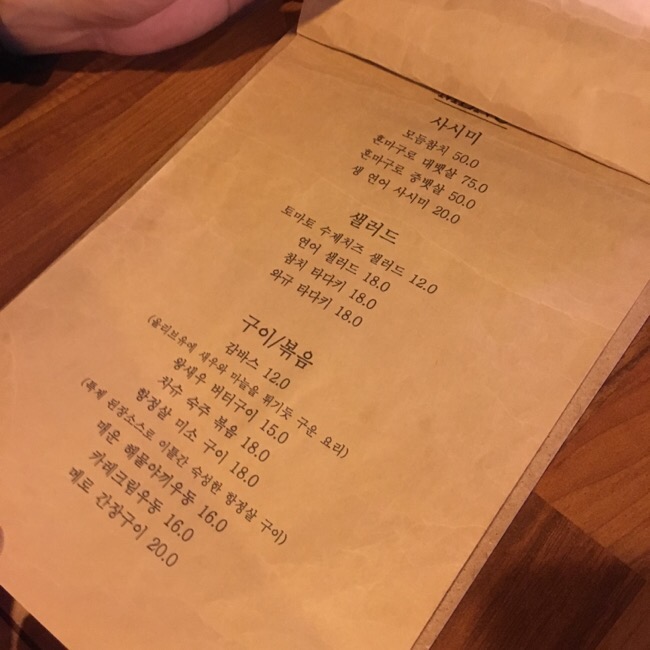 사시미
모듬참치 50.0
혼마구로 대뱃살 75.0
혼마구로 중뱃살 50.0
생 연어 사시미 20.0
샐러드
토마토 수제치즈 샐러드 12.0
연어 샐러드 18.0
참치 타다키 18.0
와규 타다키 18.0
구이/볶음
감바스 12.0
(올리브유에 새우와 마늘을 튀기듯 구운 요리)
왕새우 버터구이 15.0
차슈 숙주 볶음 18.0
항정살 미소 구이 18.0
(특제 된장소스로 이틀간 숙성한 항정살 구이)
매운 해물야끼우동 16.0
카레크림우동 16.0
메로 간장구이 20.0